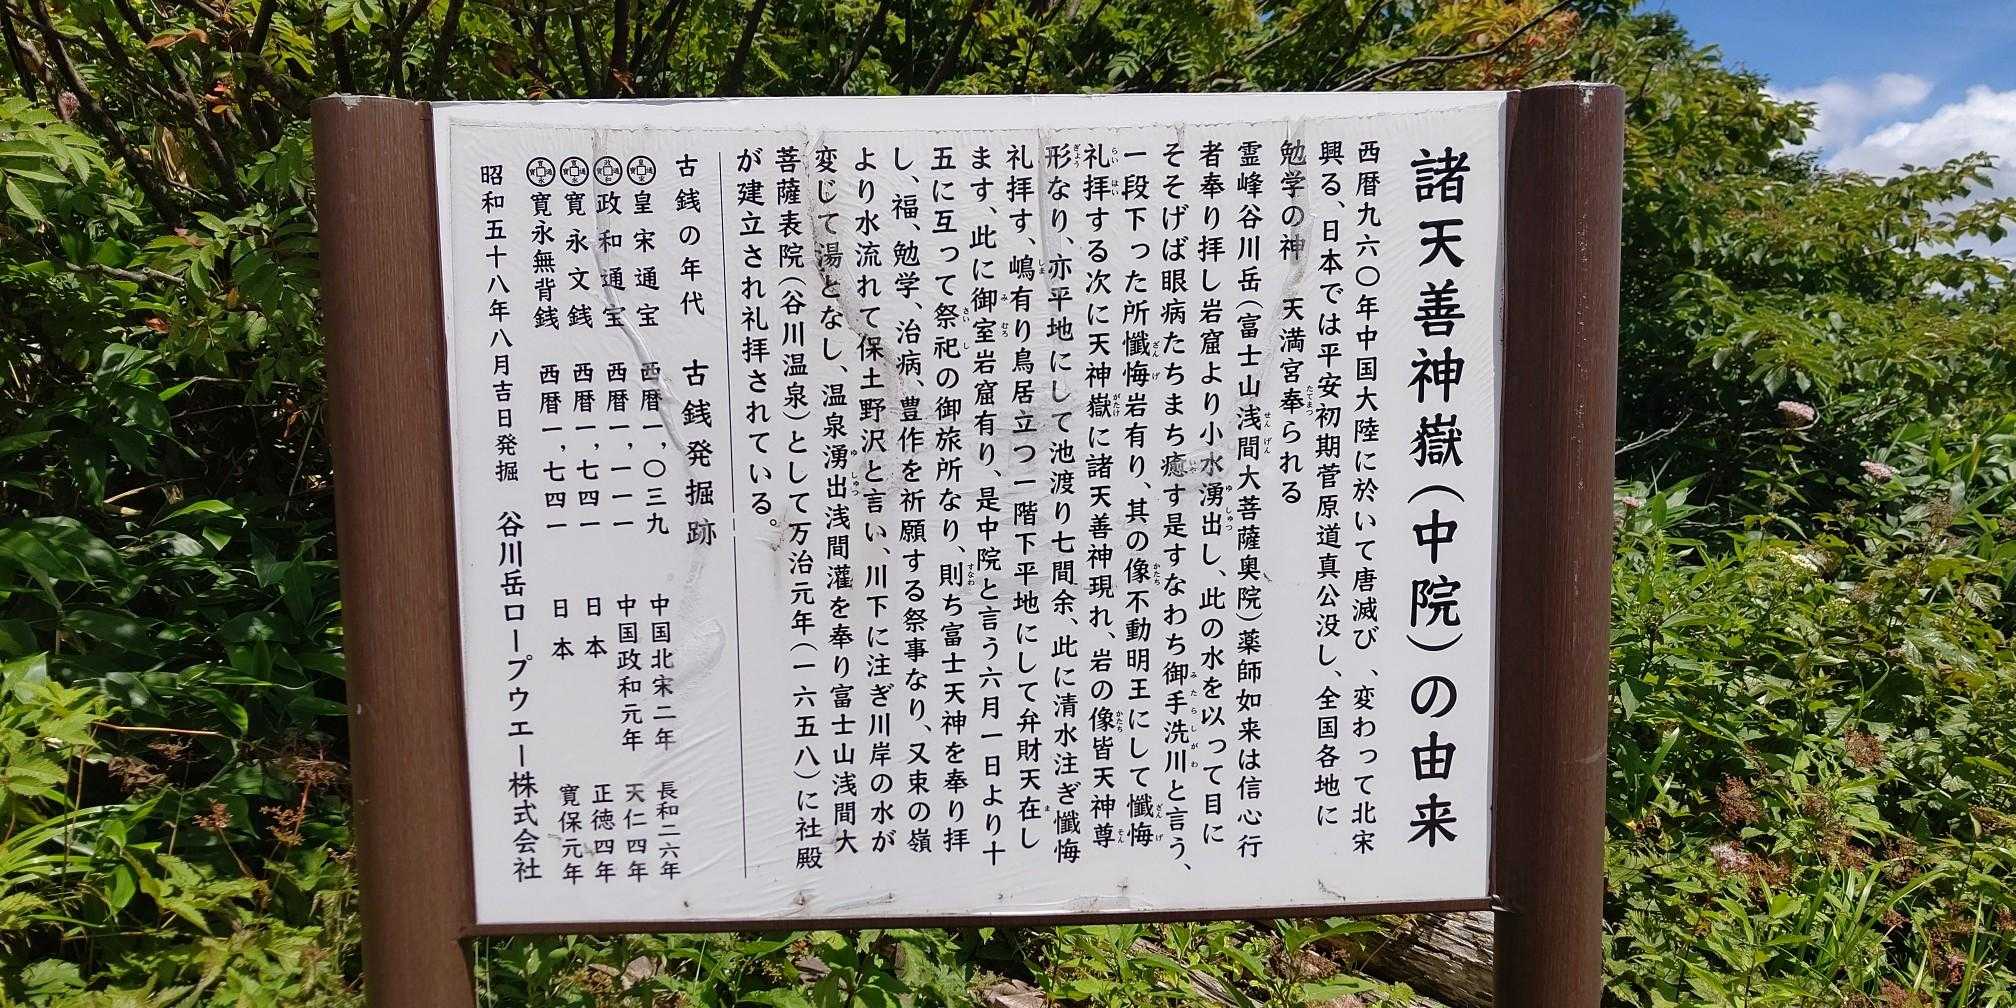 諸天善神嶽（中院）の由来
西暦九六〇年中国大陸に於いて唐滅び、変わって北宋
興る、日本では平安初期菅原道真公没し、全国各地に
勉学の神　天満宮奉られる
霊峰谷川岳（富士山浅間大菩薩奥院）薬師如来は信心行
者奉り拝し岩窟より小水湧出し、此の水を以って目に
そそげば眼病たちまち癒す是すなわち御手洗川と言う、
一段下った所懺悔岩有り、其の像不動明王にして懺悔
礼拝する次に天神嶽に諸天善神現れ、岩の像皆天神尊
形なり、亦平地にして池渡り七間余、此に清水注ぎ懺悔
礼拝す、嶋有り鳥居立つ一階下平地にして弁財天在し
ます、此に御室岩窟有り、是中院と言う六月一日より十
五に亙って祭祀の御旅所なり、則ち富士天神を奉り拝
し、福、勉学、治病、豊作を祈願する祭事なり、又束の嶺
より水流れて保土野沢と言い、川下に注ぎ川岸の水が
変じて湯となし、温泉湧出浅間灌を奉り富士山浅間大
菩薩表院（谷川温泉）として万治元年（一六五八）に社殿
が建立され礼拝されている。
古銭の年代　古銭発掘跡
皇宋通宝　西暦一,〇三九　中国北宋二年　長和二六年
政和通宝　西暦一,一一一　中国政和元年　天仁四年
寛永文銭　西暦一,七四一　日本　正徳四年
寛永無背銭　西暦一,七四一　日本　寛保元年
昭和五十八年八月吉日発掘　谷川岳ロープウエー株式会社